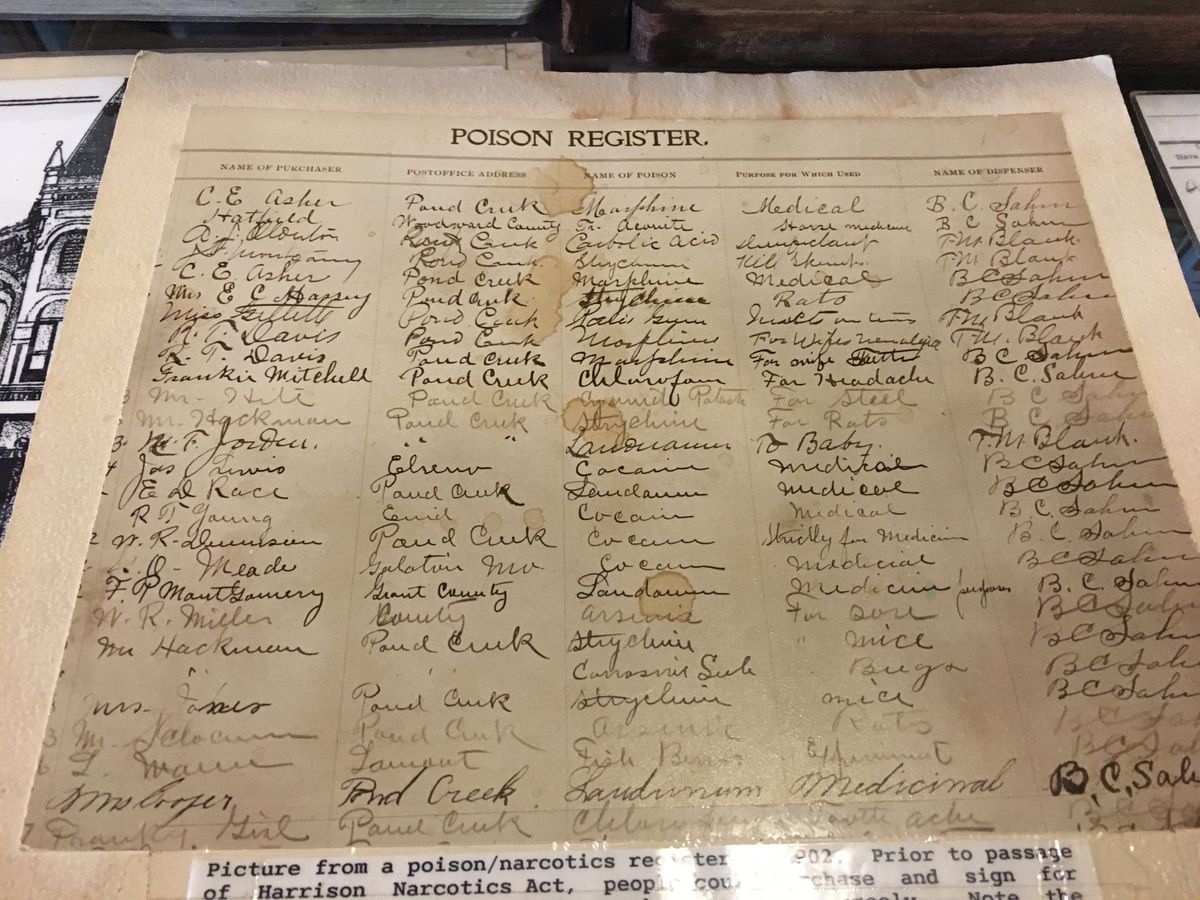 POISON REGISTER.
NAME OF PURCHASER POSTOFFICE ADDRESS NAME OF POISON PURPOSE FOR WHICH USED NAME OF DISPENSER
C. E. Asher Pond Creek Morphine Medical B. C. Sahm
Hatfield Woodward County Tr. Aconite Horse medicine B C Sahm
Pond Creek Carbolic Acid T.M. Blank.
Pond Creek Strychnine Kill Skunks T.M Blank
C. E. Asher Pond Creek Morphine Medical B C Sahm
Mrs E C Pond Creek Strychnine Rats B C Sahm
Miss Pond Creek T.M Blank
R. T. Davis Pond Creek Morphine For Wifes T. M. Blank
R. T. Davis Pond Creek Morphine For wife B C Sahm
Frankie Mitchell Pond Creek Chloroform For Headache B. C. Sahm
Mr. Hite Pond Creek For Steel B C Sahm
Mr. Hackman Pond Creek Strychnine For Rats B C Sahm
Jorden. " " Laudnaumn To Baby. T.M. Blank.
Jas Lewis Elreno Cocaine Medical B C Sahm
E D Race Pond Creek Laudanum Medical B C Sahm
R T Young Enid Cocain Medical B. C. Sahm
W. R. Dennison Pond Creek Cocain Strictly for Medicin B. C. Sahm
Meade Galatin Mo. Cocain Medicial B C Sahm
F. P. MontGomery Grant County Laudanum Medicine purposes B. C. Sahm
W. R. Miller County Arsenic For Sore B C Sahm
Mr Hackman Pond Creek Strychnine " mice B C Sahm
" " Corrosive Sub Bugs B C Sahm
Mrs. Jones Pond Creek Strychnine mice B C Sahm
Mr. Pond Creek Arsenic Rats B C Sahm
Lamont Fish Experiment B C Sahm
Pond Creek. Laudnum Medicinal B. C. Sahm
Franky Girl Pond Creek Chloroform Tooth ache B C
Picture from a poison/narcotics register 1902. Prior to passage
of Harrison Narcotics Act, people could purchase and sign for
Note the